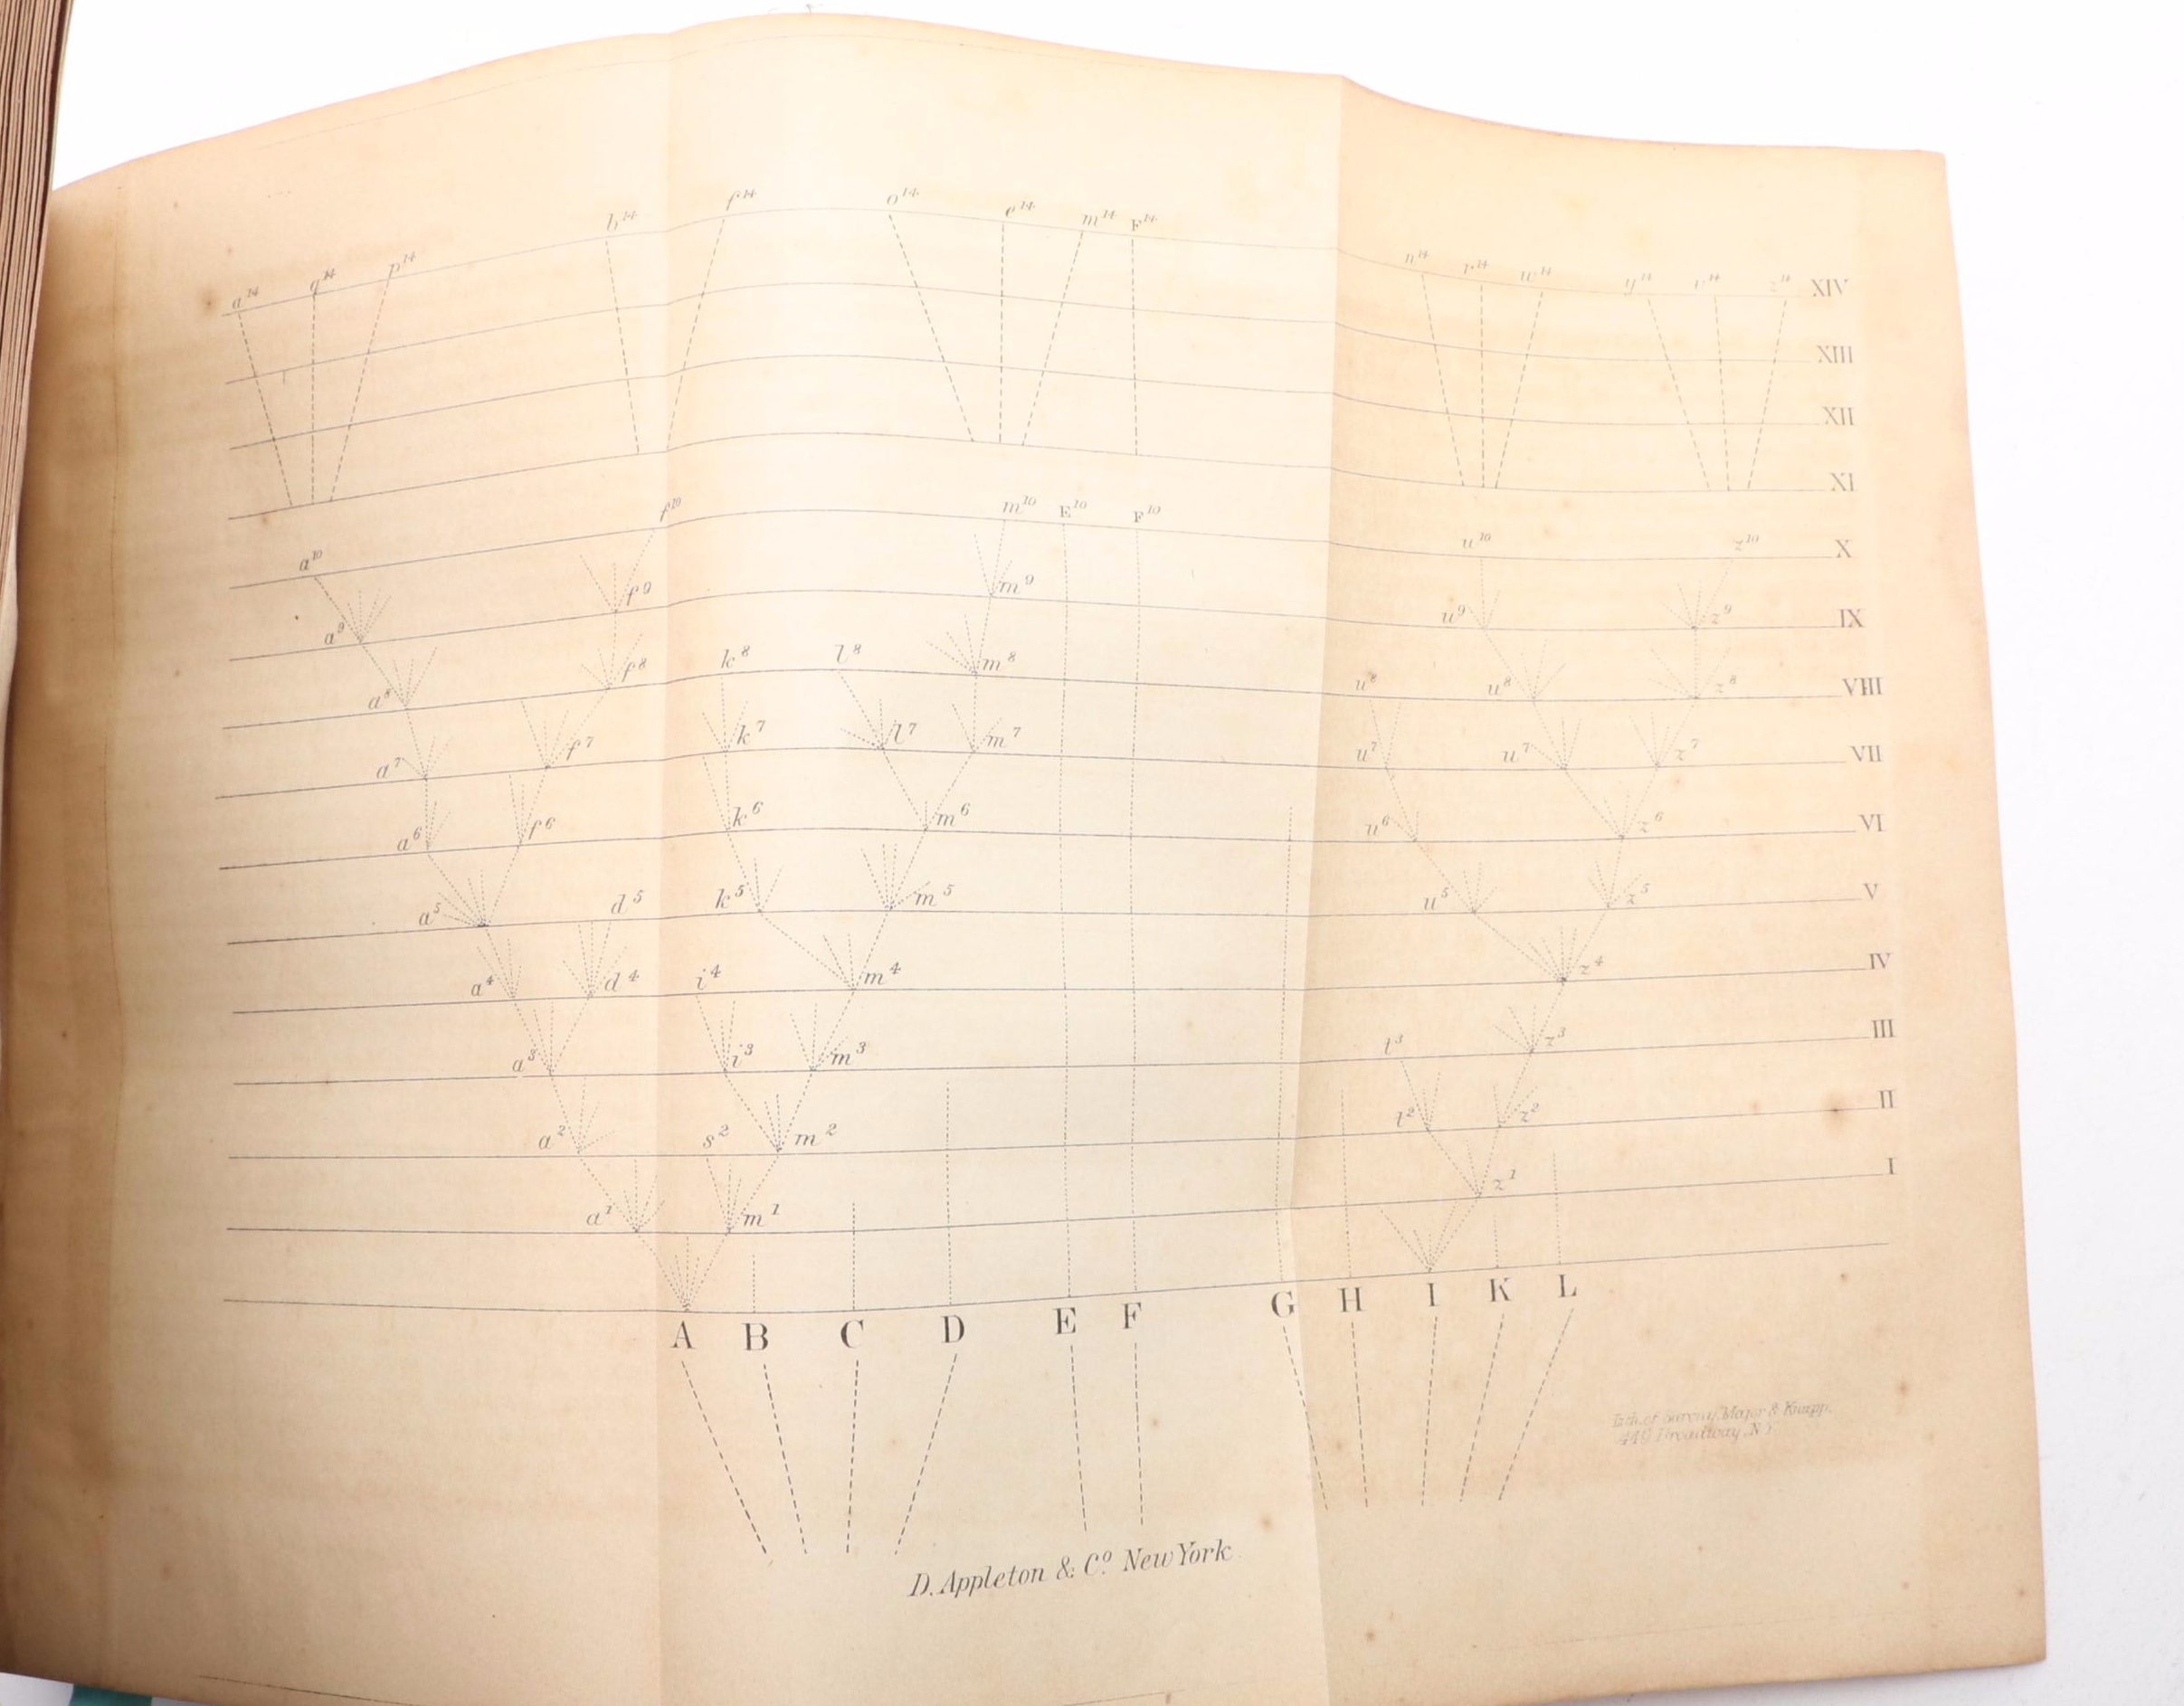 a¹⁴ q¹⁴ p¹⁴ b¹⁴ f¹⁴ o¹⁴ e¹⁴ m¹⁴ F¹⁴ n¹⁴ r¹⁴ w¹⁴ y¹⁴ v¹⁴ z¹⁴ XIV
XIII
XII
XI
a¹⁰ f¹⁰ m¹⁰ E¹⁰ F¹⁰ u¹⁰ z¹⁰ X
a⁹ f⁹ m⁹ u⁹ z⁹ IX
a⁸ f⁸ k⁸ l⁸ m⁸ u⁸ u⁸ z⁸ VIII
a⁷ f⁷ k⁷ l⁷ m⁷ u⁷ u⁷ z⁷ VII
a⁶ f⁶ k⁶ m⁶ u⁶ z⁶ VI
a⁵ d⁵ k⁵ m⁵ u⁵ z⁵ V
a⁴ d⁴ i⁴ m⁴ z⁴ IV
a³ i³ m³ t³ z³ III
a² s² m² t² z² II
a¹ m¹ z¹ I
A B C D E F G H I K L
Lith. of Sarony, Major & Knapp.
449 Broadway, N.Y.
D. Appleton & Cº. New York